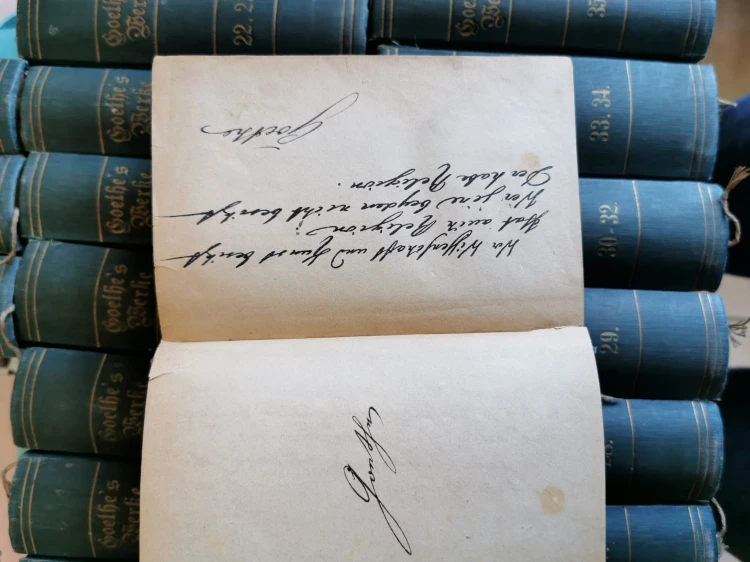 Goethe's
Werke
22. 23
Goethe's
Werke
35
Goethe's
Werke
33. 34.
Goethe's
Werke
30-32.
Goethe's
Werke
29.
Goethe's
Werke
Goethe's
Werke
Wer Wissenschaft und Kunst besitzt
Hat auch Religion;
Wer jene beyden nicht besitzt
Der habe Religion.
Goethe